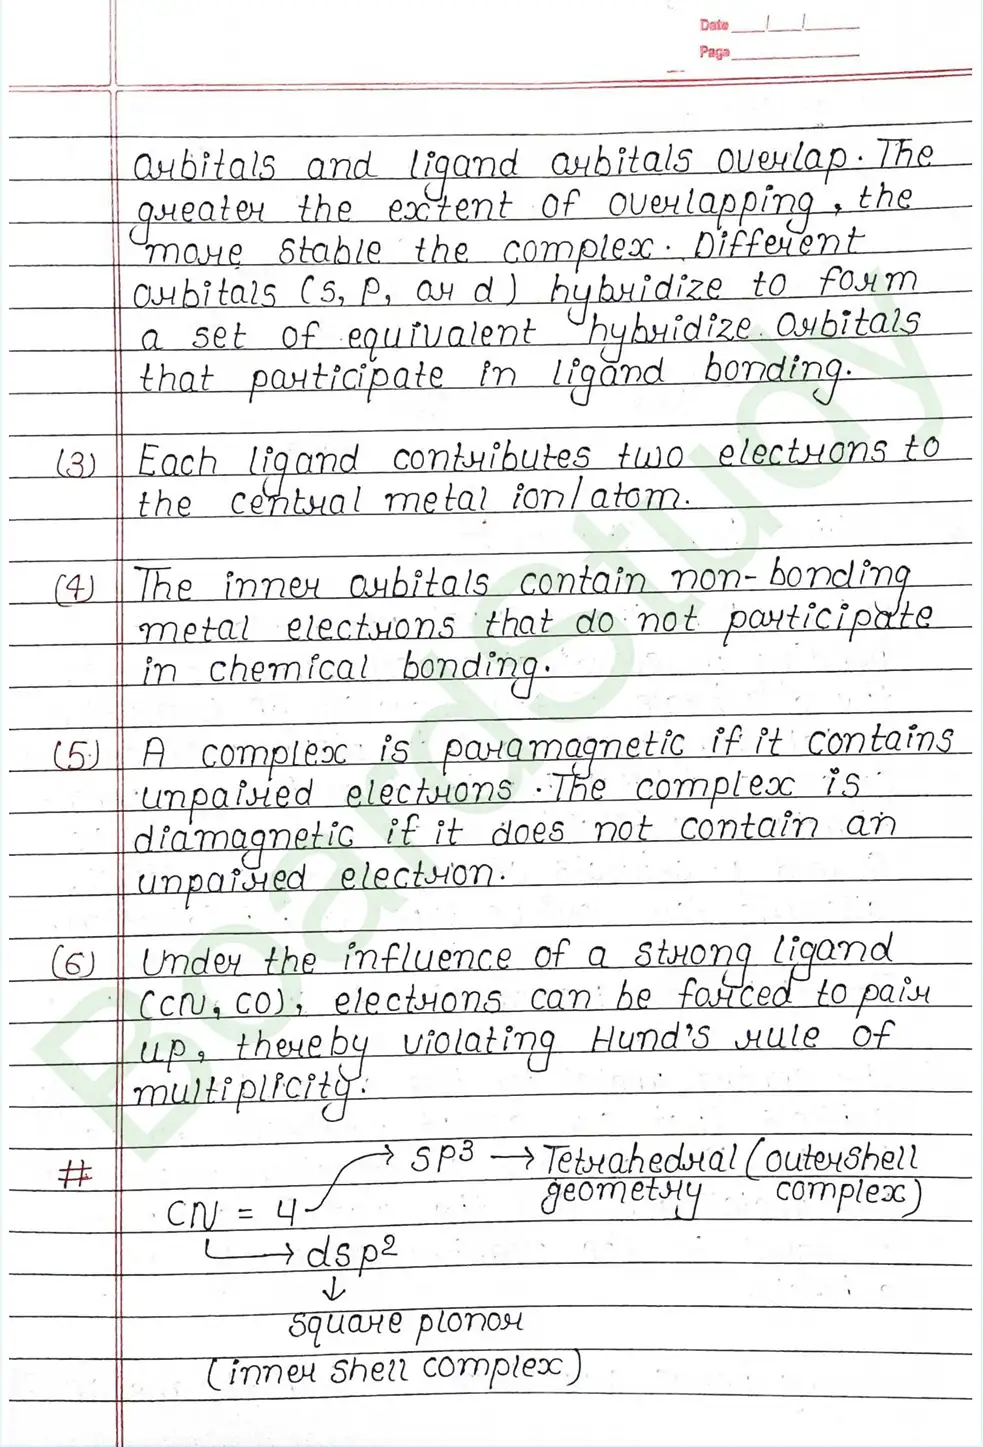 Date
Page
orbitals and ligand orbitals overlap. The
greater the extent of overlapping, the
more stable the complex. Different
orbitals (s, p, or d) hybridize to form
a set of equivalent hybridize orbitals
that participate in ligand bonding.
(3) Each ligand contributes two electrons to
the central metal ion/atom.
(4) The inner orbitals contain non-bonding
metal electrons that do not participate
in chemical bonding.
(5) A complex is paramagnetic if it contains
unpaired electrons. The complex is
diamagnetic if it does not contain an
unpaired electron.
(6) Under the influence of a strong ligand
(CN, CO), electrons can be forced to pair
up, thereby violating Hund's rule of
multiplicity.
# → sp3 → Tetrahedral (outershell
geometry complex)
CN = 4
→ dsp2
↓
square planor
(inner shell complex)
BoardStudy